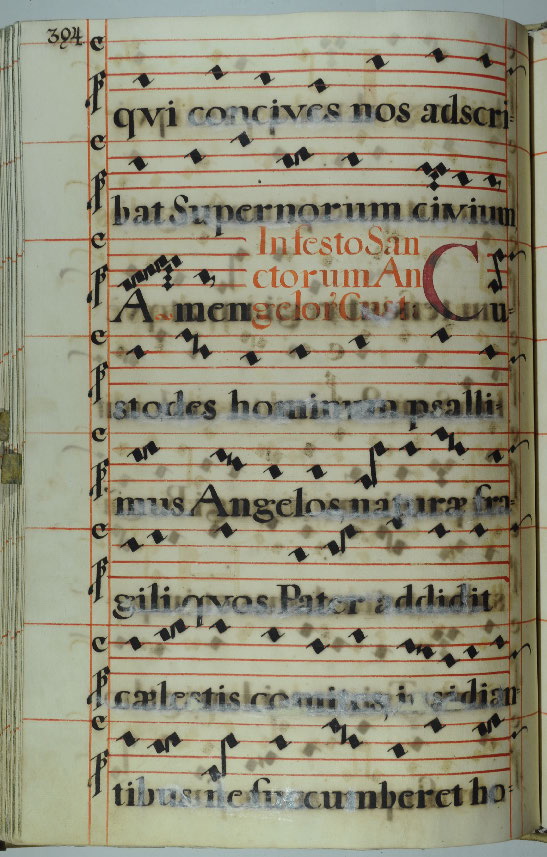 394
qvi concives nos adscri-
bat Supernorum civium
In festo San
A men
ctorum An
gelor Cust. Cu-
stodes hominum psalli-
mus Angelos naturæ fra-
gili qvos Pater addidit
cælestis comites, insidian
tibus ne succumberet ho-